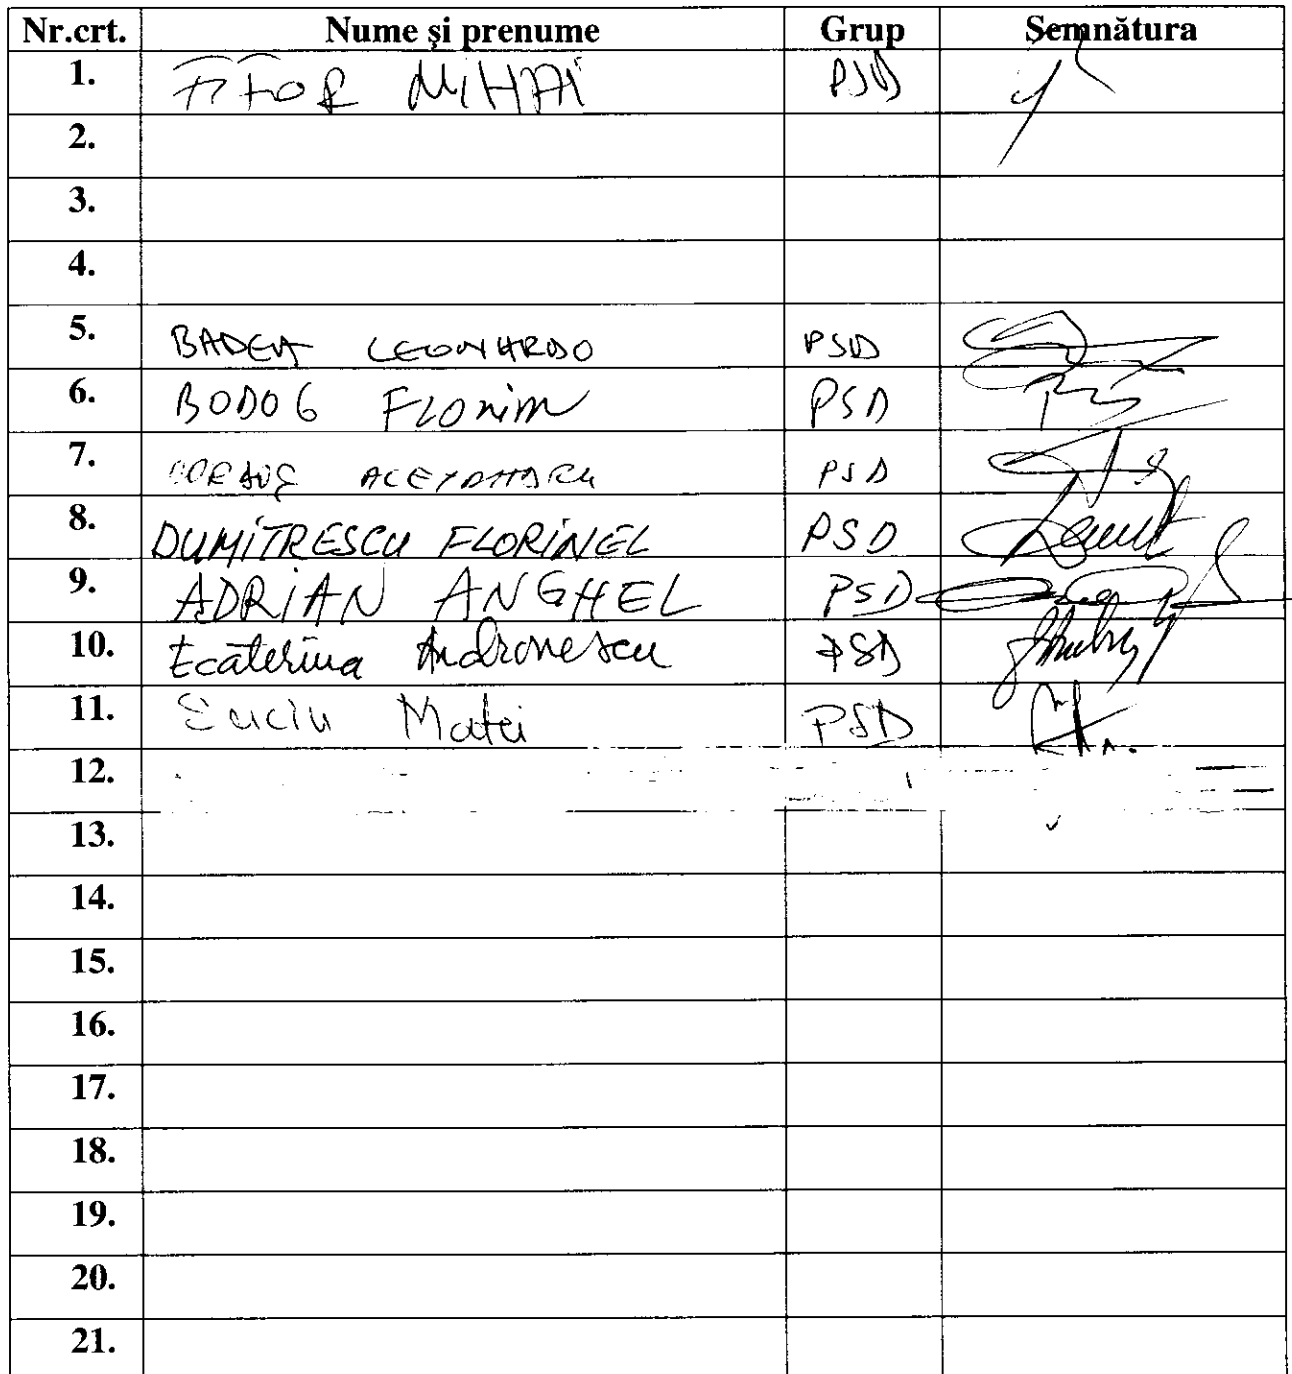 Nr.crt. Nume şi prenume Grup Semnătura
1. FIFOR MIHAI PSD
2.
3.
4.
5. BADEA LEONARDO PSD
6. BODOG FLORIN PSD
7. PSD
8. DUMITRESCU FLORINEL PSD
9. ADRIAN ANGHEL PSD
10. Ecaterina Andronescu PSD
11. Suciu Matei PSD
12.
13.
14.
15.
16.
17.
18.
19.
20.
21.